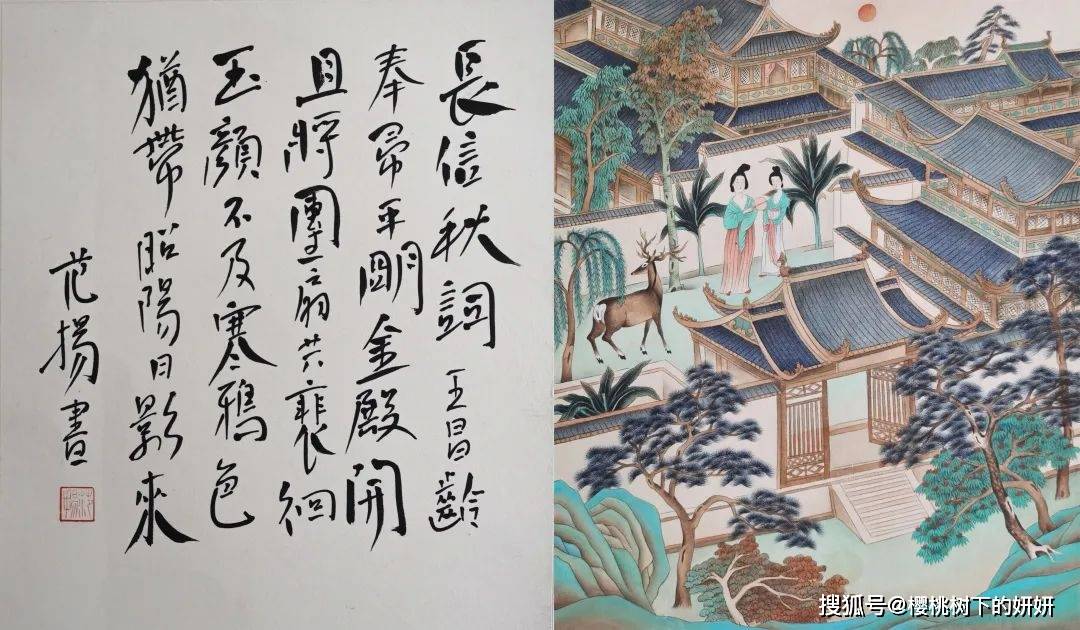 長信秋詞 王昌齡
奉帚平明金殿開
且將團扇共裵徊
玉顏不及寒鴉色
猶帶昭陽日影來
范揚書
搜狐号@樱桃树下的妍妍